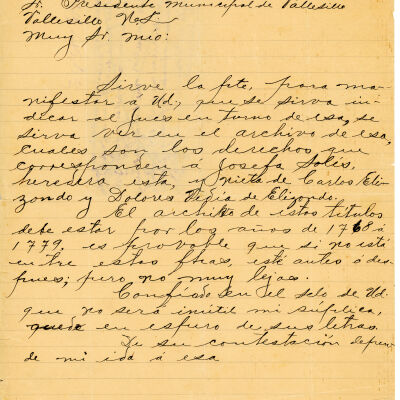 Sr. Presidente Municipal de Vallesillo
Vallesillo N.L.
Muy Sr. mio:
Sirve la pte, para ma-
nifestar á Ud., que se sirva in-
dicar al Juez en turno de esa, se
sirva ver en el archivo de esa,
cuales son los derechos que
corresponden á Josefa Solis,
heredera esta, y nieta de Carlos Eli-
zondo y Dolores Vigia de Elizondo.
El archivo de estos titulos
debe estar por loz años de 1768 á
1779, es provable que si no está
entre estas fhas, esté antes ó des-
pues; pero no muy lejos.
Confiado en el selo de Ud.
que no será inutil mi súplica,
quedo en espero de sus letras.
De su contestación depen-
de mi ida á esa